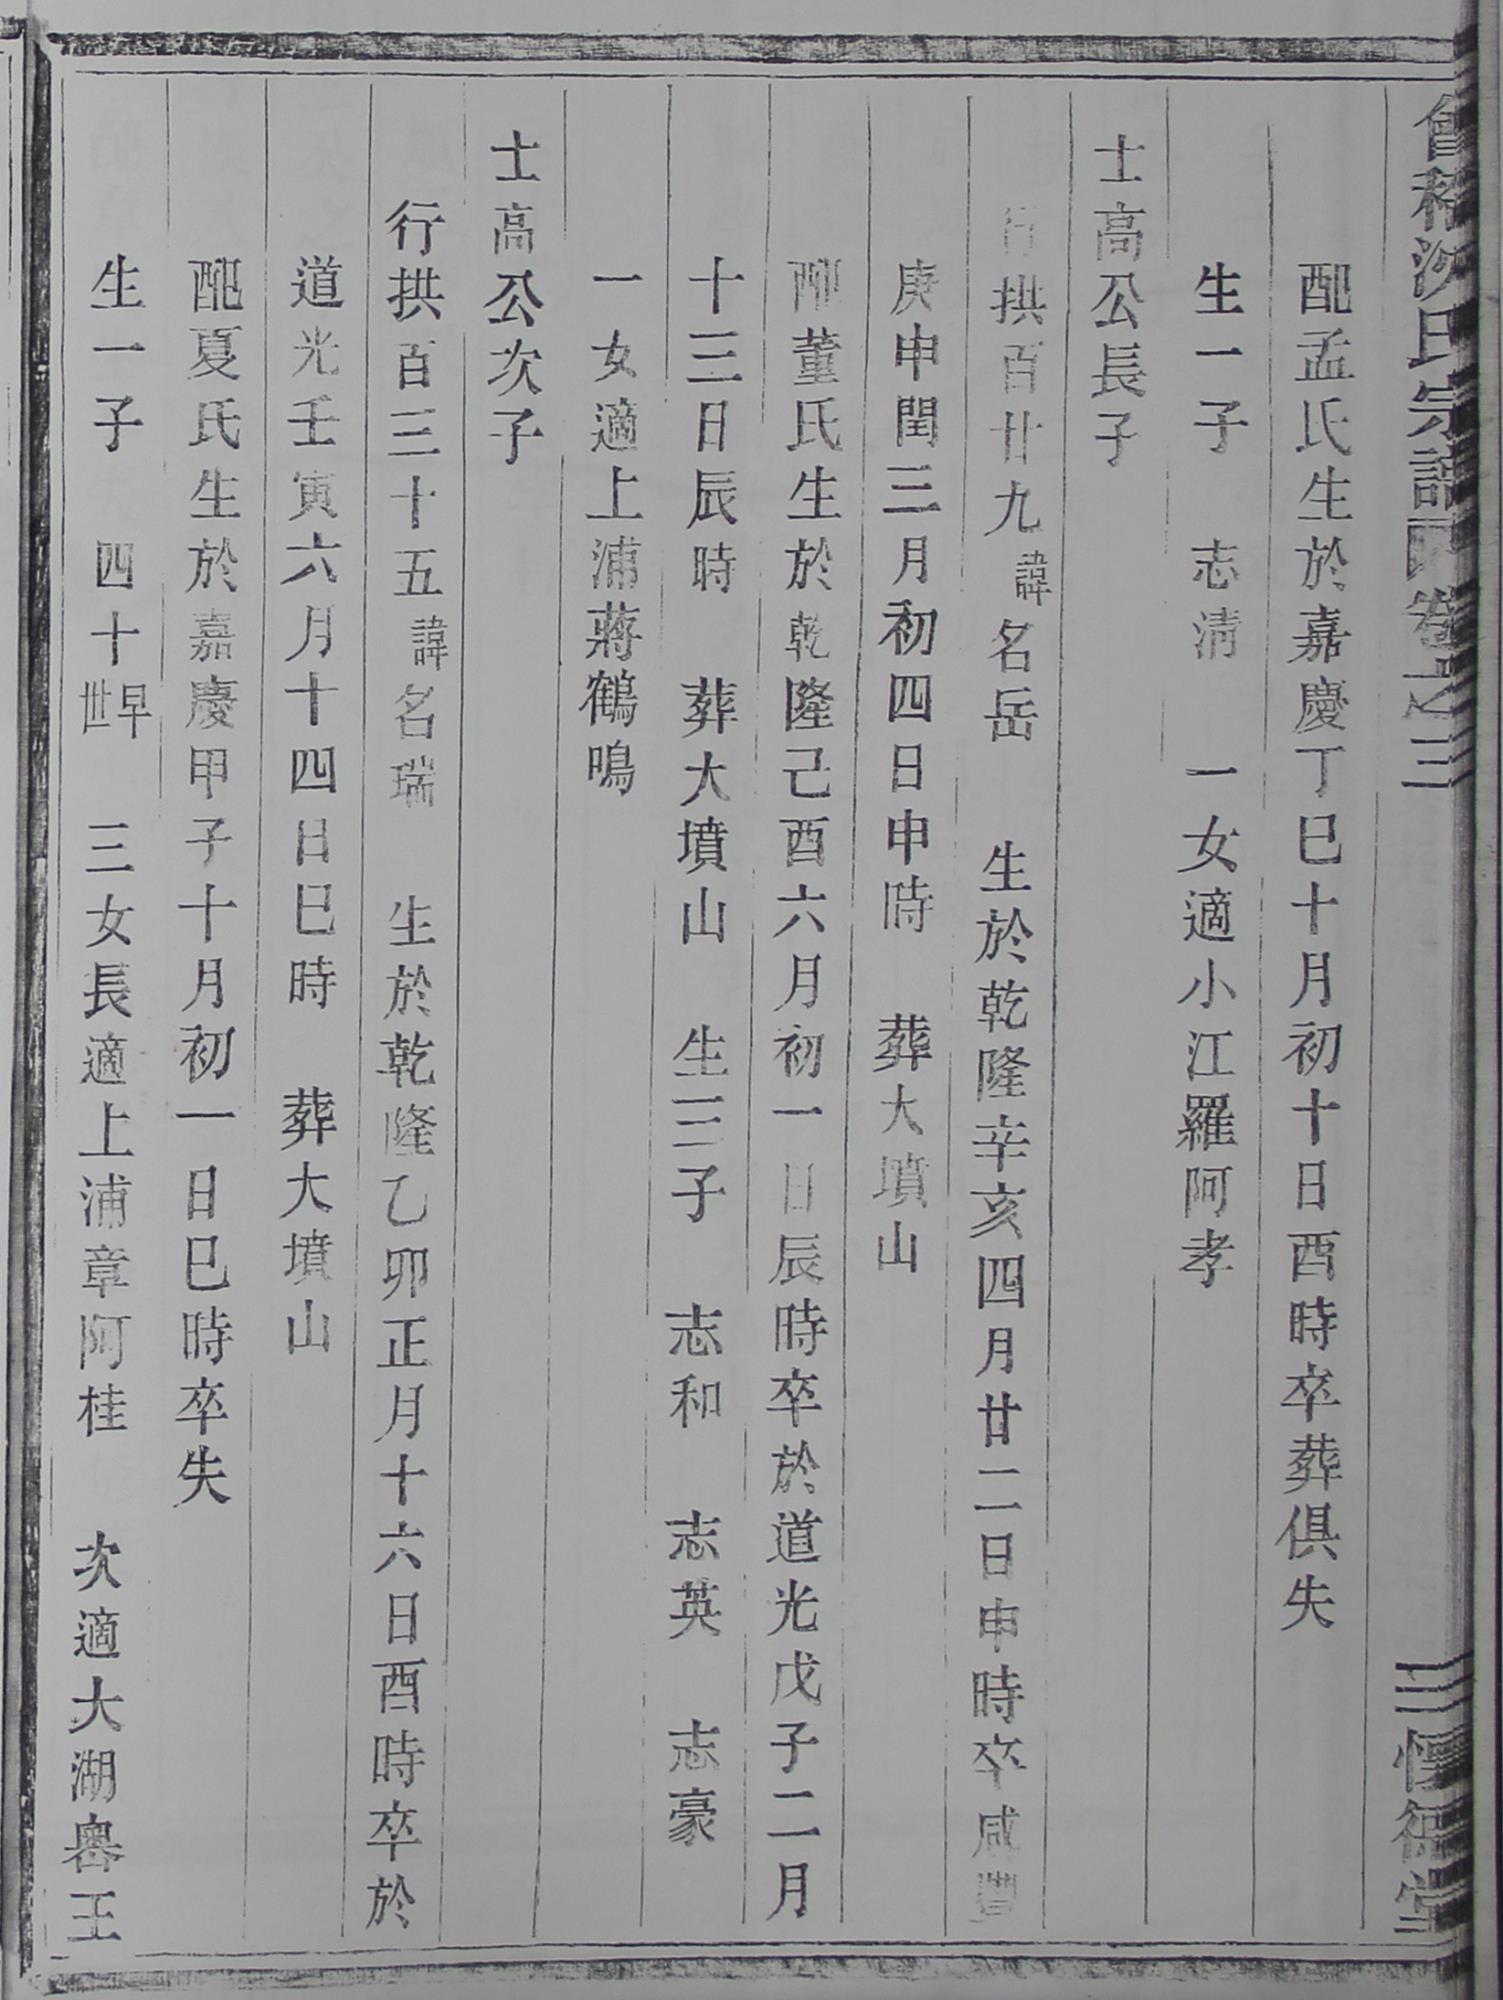 會稽沈氏宗譜 卷之三 三 德堂
配孟氏生於嘉慶丁巳十月初十日酉時卒葬俱失
生一子 志淸 一女適小江羅阿孝
士高公長子
行拱百廿九諱名岳 生於乾隆辛亥四月廿二日申時卒咸豐
庚申閏三月初四日申時 葬大墳山
配董氏生於乾隆己酉六月初一日辰時卒於道光戊子二月
十三日辰時 葬大墳山 生三子 志和 志英 志豪
一女適上浦蔣鶴鳴
士高公次子
行拱百三十五諱名瑞 生於乾隆乙卯正月十六日酉時卒於
道光壬寅六月十四日巳時 葬大墳山
配夏氏生於嘉慶甲子十月初一日巳時卒失
生一子 四十早世 三女長適上浦章阿桂 次適大湖嶴王